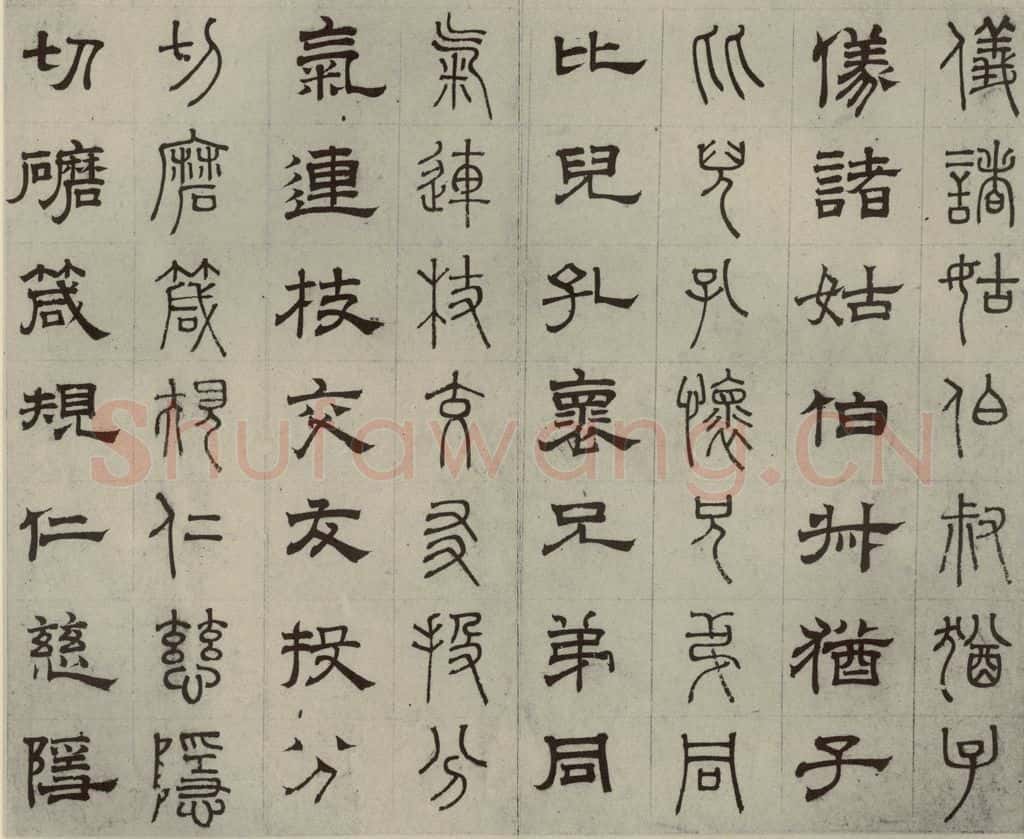 儀諸姑伯叔猶子
儀諸姑伯叔猶子
比兒孔懷兄弟同
比兒孔懷兄弟同
氣連枝交友投分
氣連枝交友投分
切磨箴規仁慈隱
切磨箴規仁慈隱
Shufawang.CN